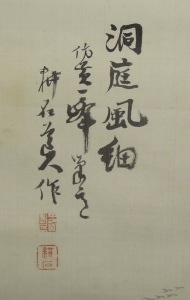 洞庭風細
仿黃一峰筆意
耕石道人作